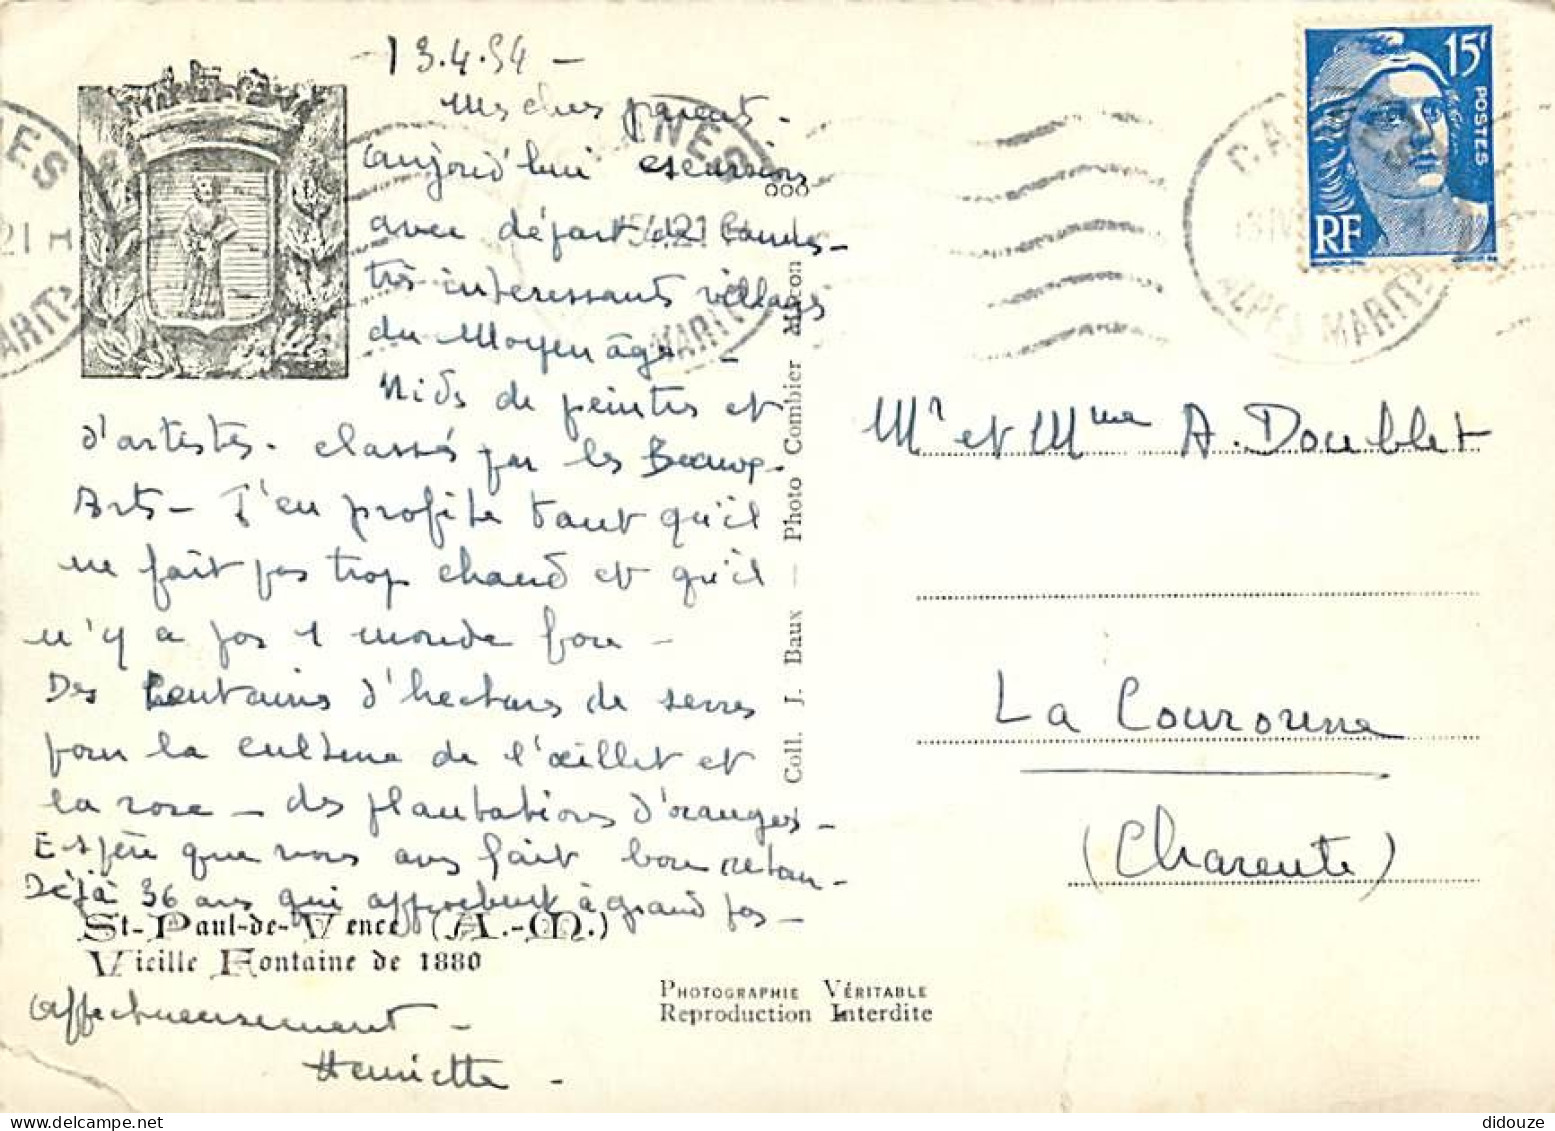 13.4.54 -
Mes chers parents -
Aujourd'hui excursion
avec départ de Cannes -
très interessants villages
du Moyen âge -
Nids de peintres et
d'artistes. classés par les Beaux-
Arts - J'en profite tant qu'il
ne fait pas trop chaud et qu'il
n'y a pas 1 monde fou -
Des centaines d'hectares de serres
pour la culture de l'œillet et
la rose - des plantations d'orangers -
Espère que vous avez fait bon retour -
Déjà 36 ans qui approchent à grand pas -
St-Paul-de-Vence (A.-M.)
Vieille Fontaine de 1880
Affectueusement -
Henriette -
Coll. J. Baux — Photo Combier Macon
PHOTOGRAPHIE VÉRITABLE
Reproduction Interdite
15f
POSTES
RF
CANNES
ALPES MARITES
NNES
21
MARIT
NES
21 H
MARITES
Mr et Mme A. Doublet
La Couronne
(Charente)
didouze